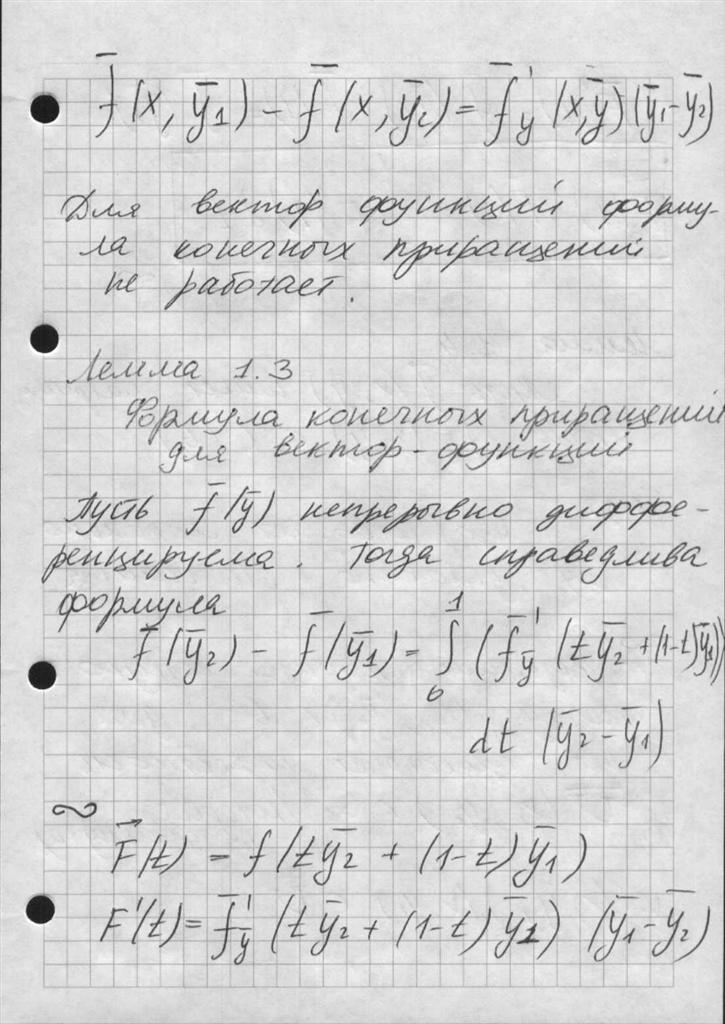 f̄(x, ȳ₁) - f̄(x, ȳ₂) = f̄'y (x,ȳ)(ȳ₁-ȳ₂)
Для вектор функций форму-
ла конечных приращений
не работает.
Лемма 1.3
Формула конечных приращений
для вектор-функций
Пусть f̄(ȳ) непрерывно диффе-
ренцируема. Тогда справедлива
формула
f̄(ȳ₂) - f̄(ȳ₁) = ∫₀¹ (f̄'ȳ (tȳ₂ + (1-t)ȳ₁))
dt (ȳ₂ - ȳ₁)
F⃗(t) = f(tȳ₂ + (1-t)ȳ₁)
F'(t) = f̄'ȳ (tȳ₂ + (1-t)ȳ₁) (ȳ₁-ȳ₂)